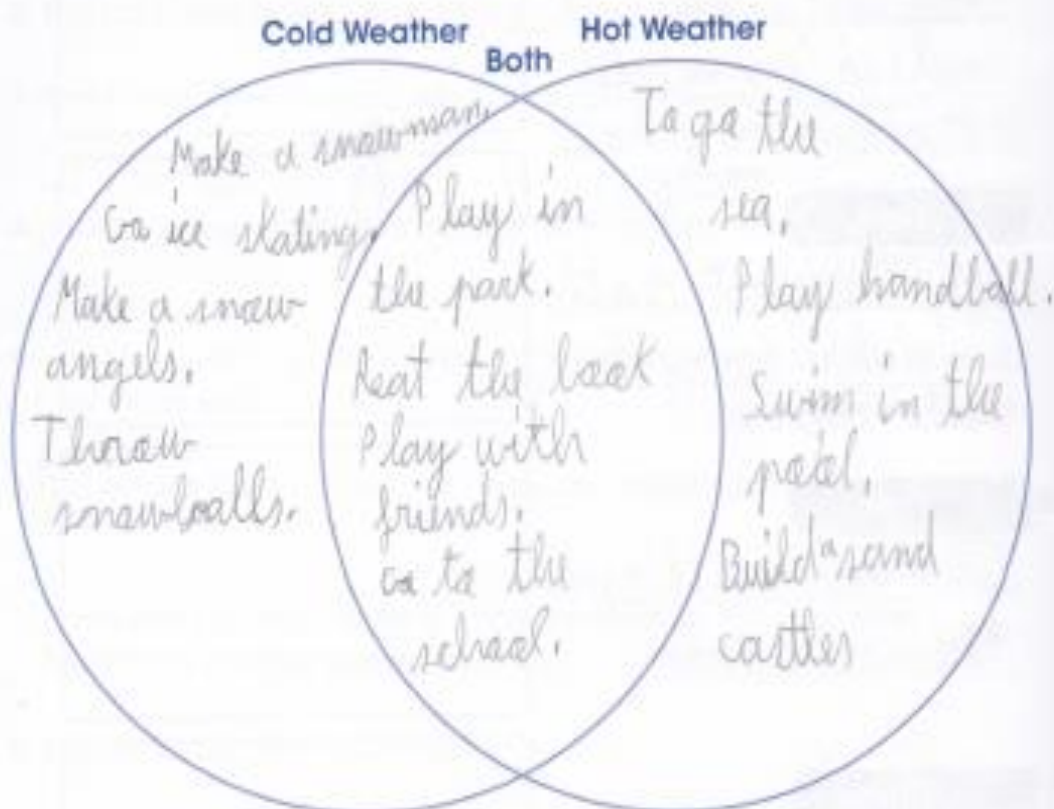 Cold Weather
Both
Hot Weather
Make a snowman.
Go ice skating.
Make a snow
angels.
Throw
snowballs.
Play in
the park.
Reat the book
Play with
friends.
Go to the
school.
To go the
sea.
Play handball.
Swim in the
pool.
Build a sand
castles